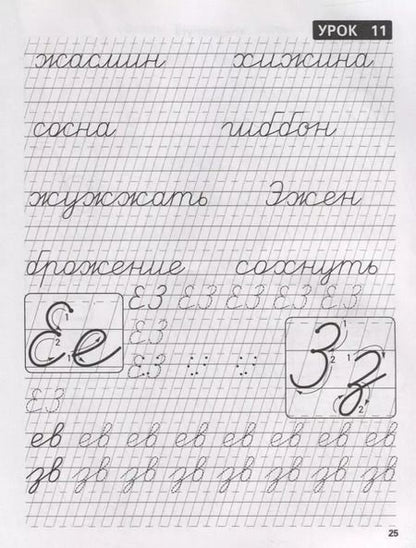 УРОК 11
жасмин хижина
сосна гиббон
жужжать Эжен
брожение сохнуть
ЕЗ ЕЗ ЕЗ ЕЗ ЕЗ
Ее ЕЗ Зз
ЕЗ
ЕЗ
ев ев ев ев ев ев ев ев
зв зв зв зв зв зв зв зв
25